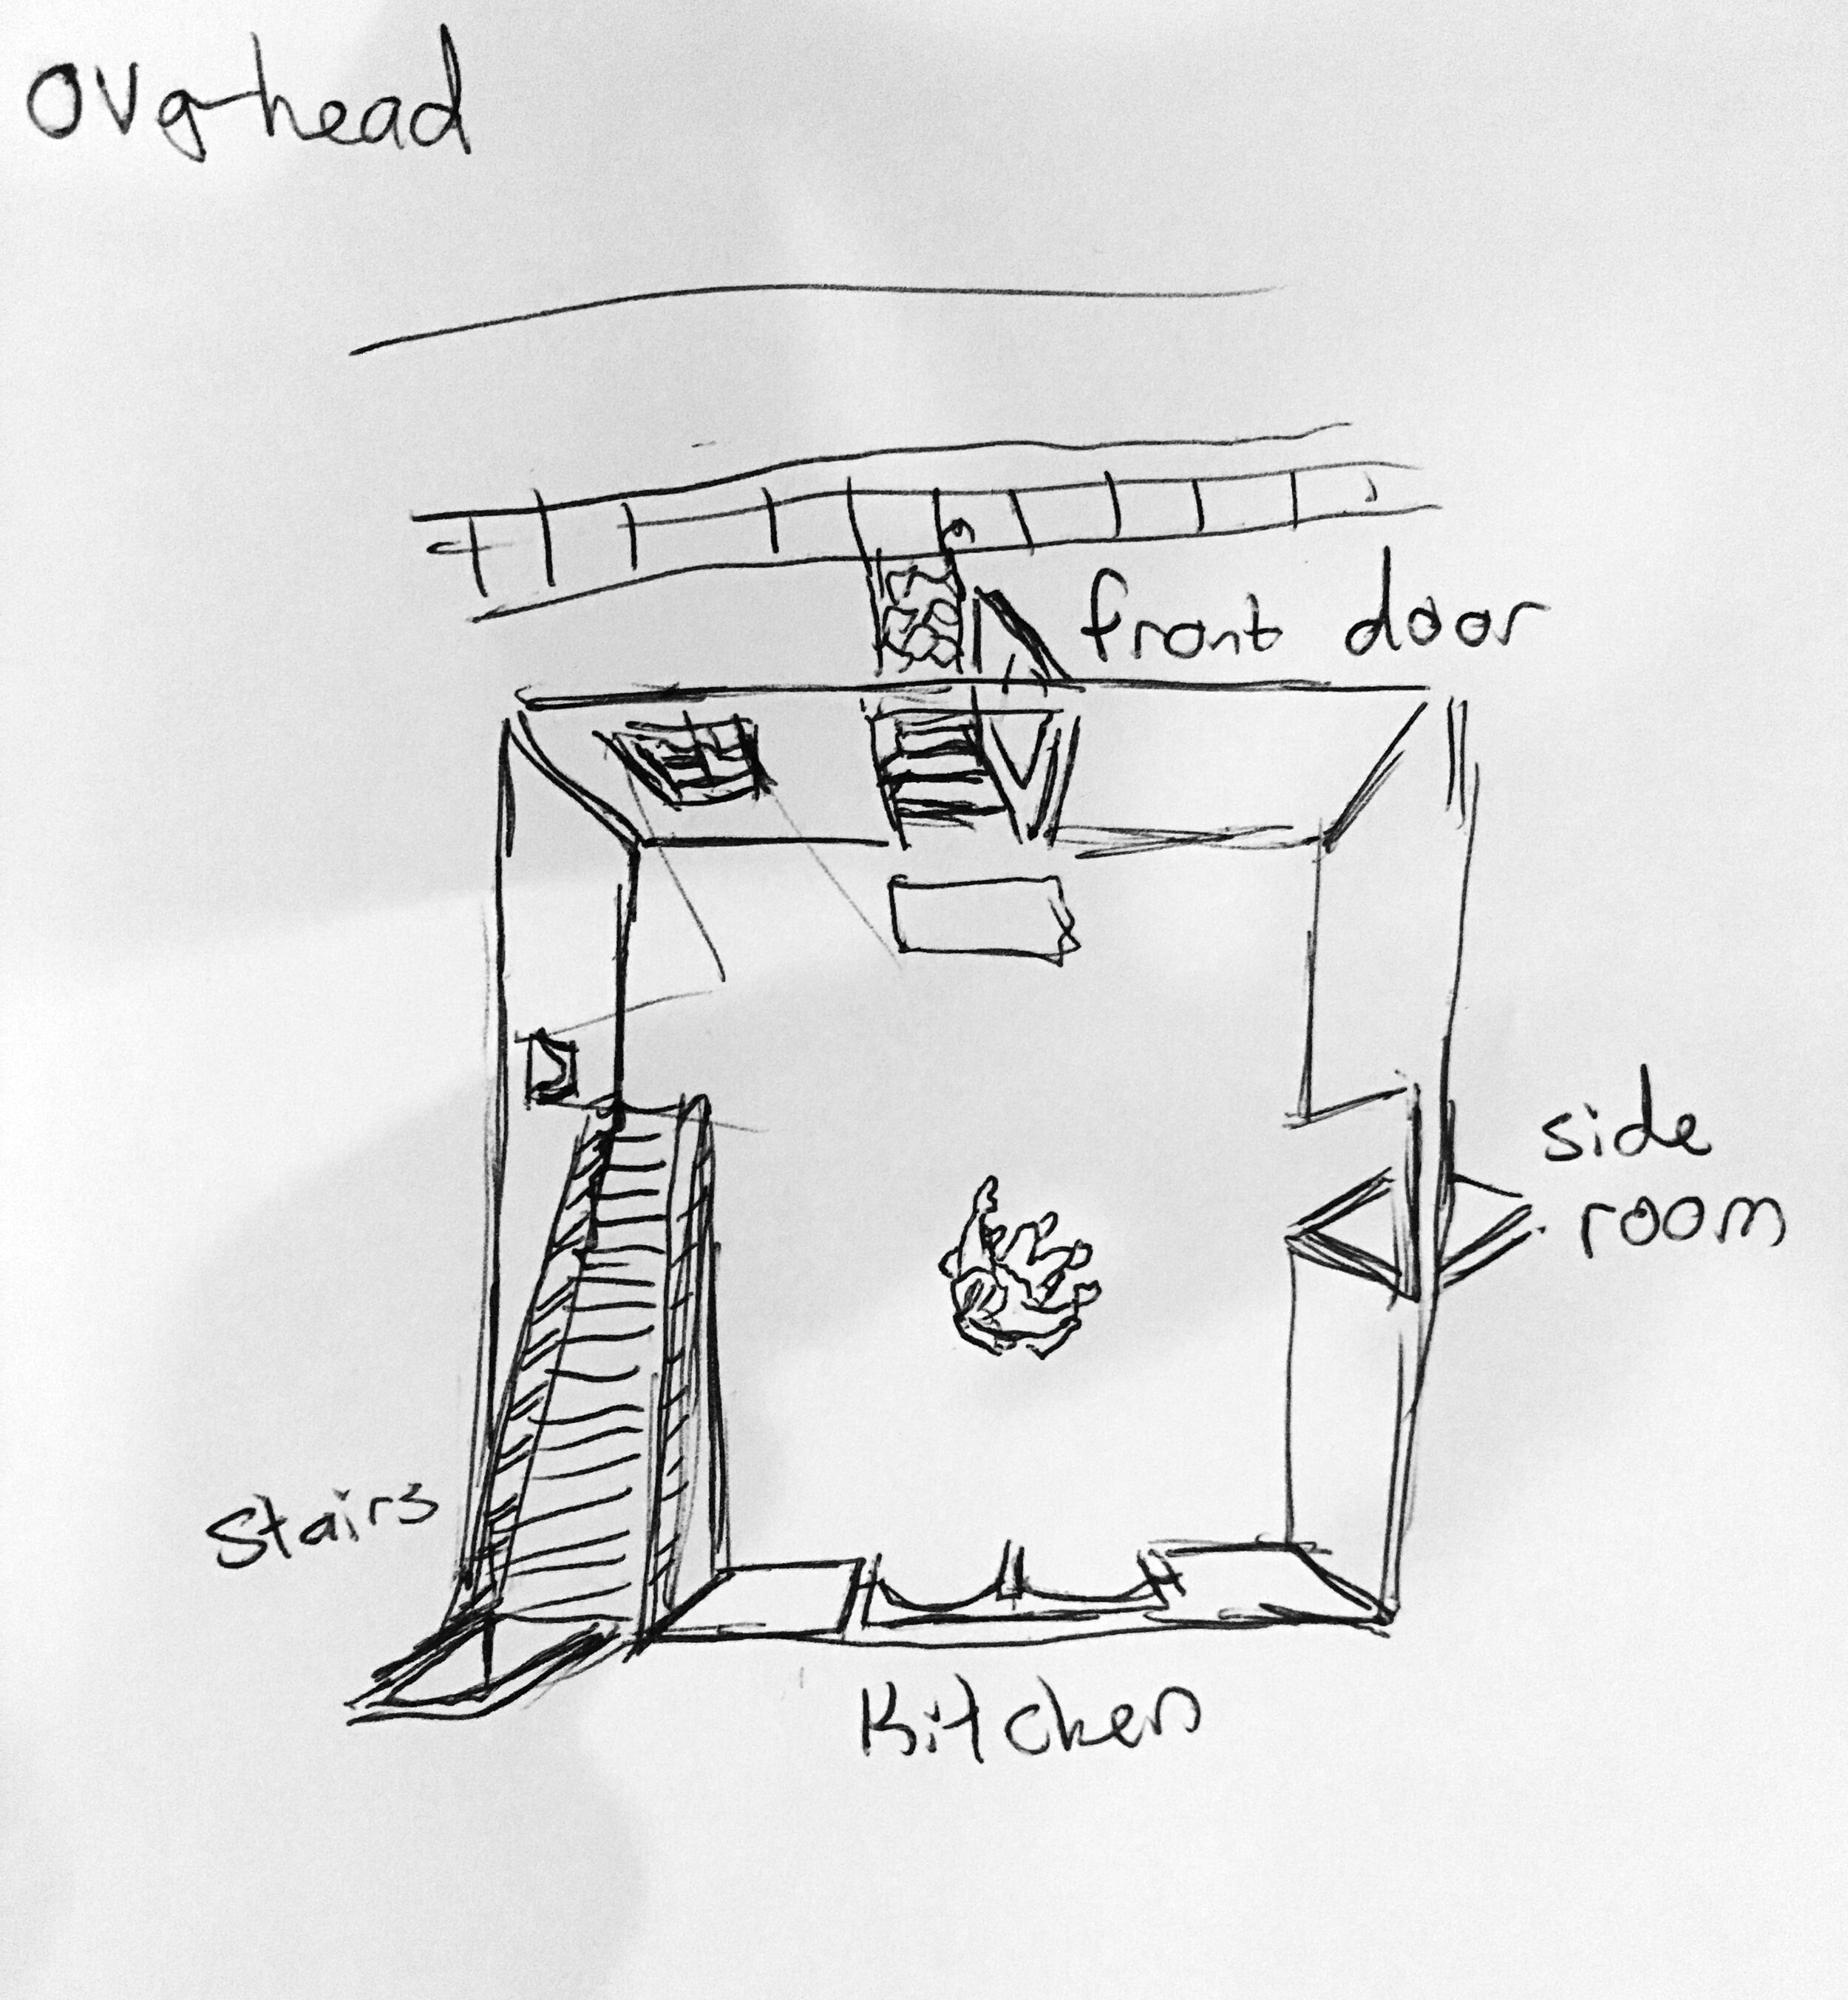 Overhead
front door
side
room
Stairs
Kitchen